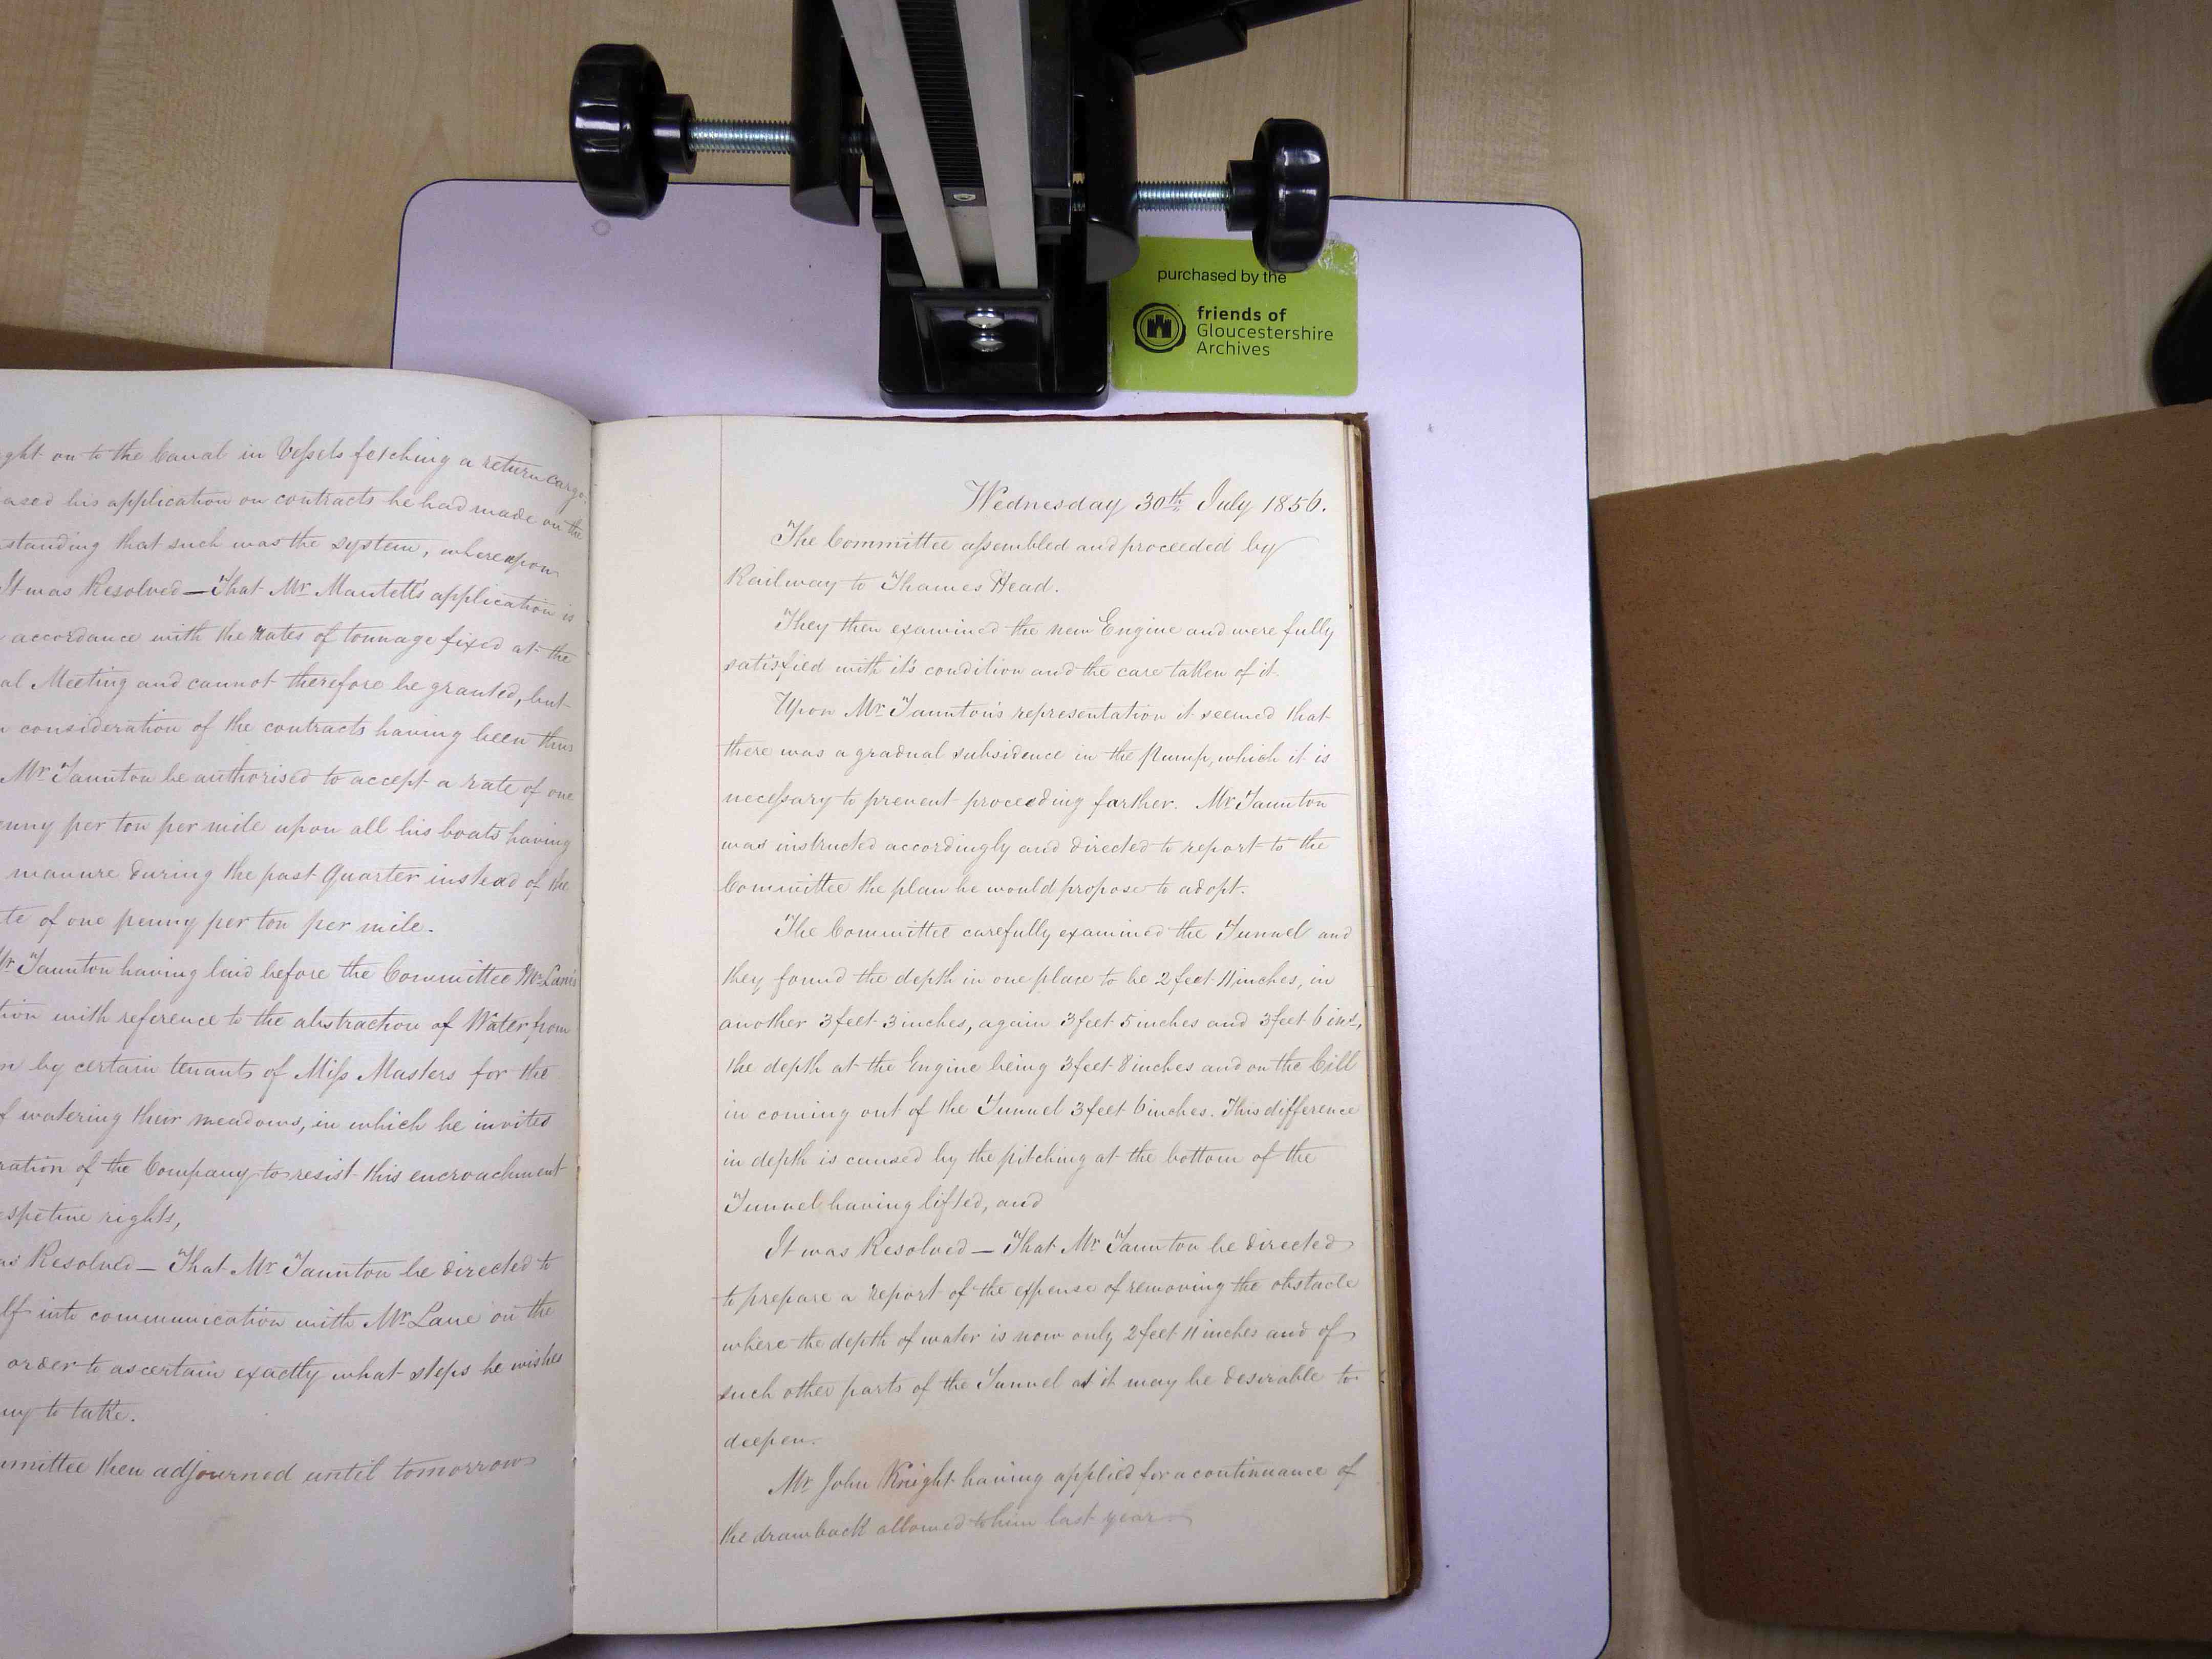 purchased by the
friends of
Gloucestershire
Archives
ght on to the Canal in Vessels fetching a return cargo.
ased his application on contracts he had made on the
standing that such was the system, whereupon
It was Resolved — That Mr Mantell's application is
accordance with the rates of tonnage fixed at the
al Meeting and cannot therefore be granted, but
consideration of the contracts having been thus
Mr Taunton be authorised to accept a rate of one
enny per ton per mile upon all his boats having
manure during the past Quarter instead of the
te of one penny per ton per mile.
Mr Taunton having laid before the Committee Mr Lane's
tion with reference to the abstraction of Water from
n by certain tenants of Miss Masters for the
f watering their meadows, in which he invited
ration of the Company to resist this encroachment
espetive rights,
as Resolved — That Mr Taunton be directed to
lf into communication with Mr Lane on the
order to ascertain exactly what steps he wishes
ny to take.
mmittee then adjourned until tomorrow
Wednesday 30th July 1856.
The Committee assembled and proceeded by
Railway to Thames Head.
They then examined the new Engine and were fully
satisfied with it's condition and the care taken of it.
Upon Mr Taunton's representation it seemed that
there was a gradual subsidence in the Pump, which it is
necessary to prevent proceeding farther. Mr Taunton
was instructed accordingly and directed to report to the
Committee the plan he would propose to adopt.
The Committee carefully examined the Tunnel and
they found the depth in one place to be 2 feet 11 inches, in
another 3 feet 3 inches, again 3 feet 5 inches and 3 feet 6 ins,
the depth at the Engine being 3 feet 8 inches and on the Cill
in coming out of the Tunnel 3 feet 6 inches. This difference
in depth is caused by the pitching at the bottom of the
Tunnel having lifted, and
It was Resolved — That Mr Taunton be directed
to prepare a report of the expense of removing the obstacle
where the depth of water is now only 2 feet 11 inches and of
such other parts of the Tunnel as it may be desirable to
deepen.
Mr John Knight having applied for a continuance of
the drawback allowed to him last year —